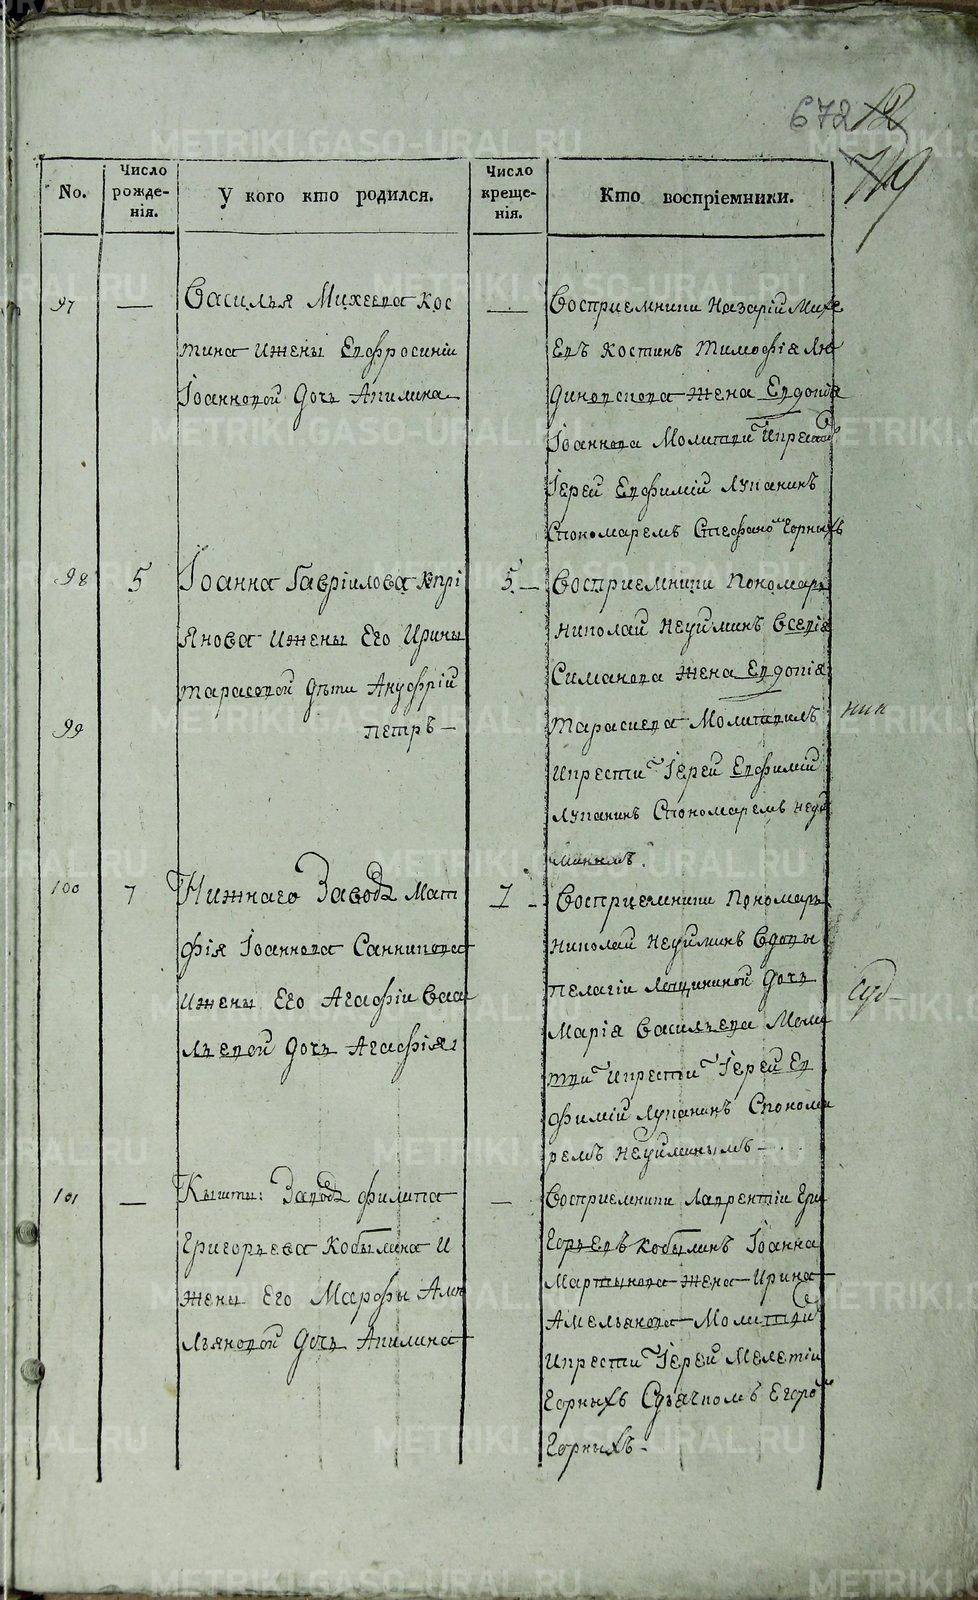 672 12
719
No.
Число рожде-нія.
У кого кто родился.
Число креще-нія.
Кто воспріемники.
97 —
Василья Михеева Кос
тина ижены Евфросиніи
Іоанновой дочь Акилина
—
Восприемники Назарій Михе
евъ Костинъ Тимофія
жена Евдокія
Іоаннова Молитви и крести
Іерей Евфимій Лукинъ
Спономаремъ Стефано Горныхъ
98 5
Іоанна Гавріилова Кипрі
янова ижены Его Ирины
тарасовой дѣти Ануфрій
99
петръ —
5 —
Восприемники Пономарь
Николай Неуйминъ
Симанова жена Евдокія
Тарасиева Молитвилъ
икрести Іерей Евфимій
Спономаремъ Неуй
минымъ.
ник
100 7
Нижнаго Завода Мат
фія Іоаннова Санникова
ижены Его Агафіи Васи
льевой дочь Агафія
7 -
Восприемники Пономарь
Николай Неуйминъ Вдовы
пелагіи дочь
Марія Васильева Моли
тви икрести Іерей Ев
фимій Спонома
ремъ Неуйминымъ —
101 —
Кышты: Завода филипа
Григорьева Кобылина и
жены Его Марфы Аме
льяновой дочь Акилина
—
Восприемники Лаврентіи Гри
горьевъ Кобылинъ Іоанна
Мартынова жена Ирина
Амельянова Молитви
икрести Іерей Мелетіи
Горныхъ Сдьячкомъ Егоро
Горныхъ-
METRIKI.GASO-URAL.RU